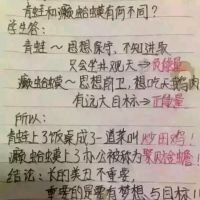 青蛙和癞蛤蟆有何不同?
学生答:
青蛙~思想保守,不知进取
只会坐井观天→负能量
癞蛤蟆~思想前卫,想吃天鹅肉
有远大目标→正能量
所以:
青蛙上了饭桌成了一道菜叫炒田鸡!
癞蛤蟆上了办公被称为聚财金蟾!
结论:长的美丑不重要,
重要的是要有梦想与目标!!